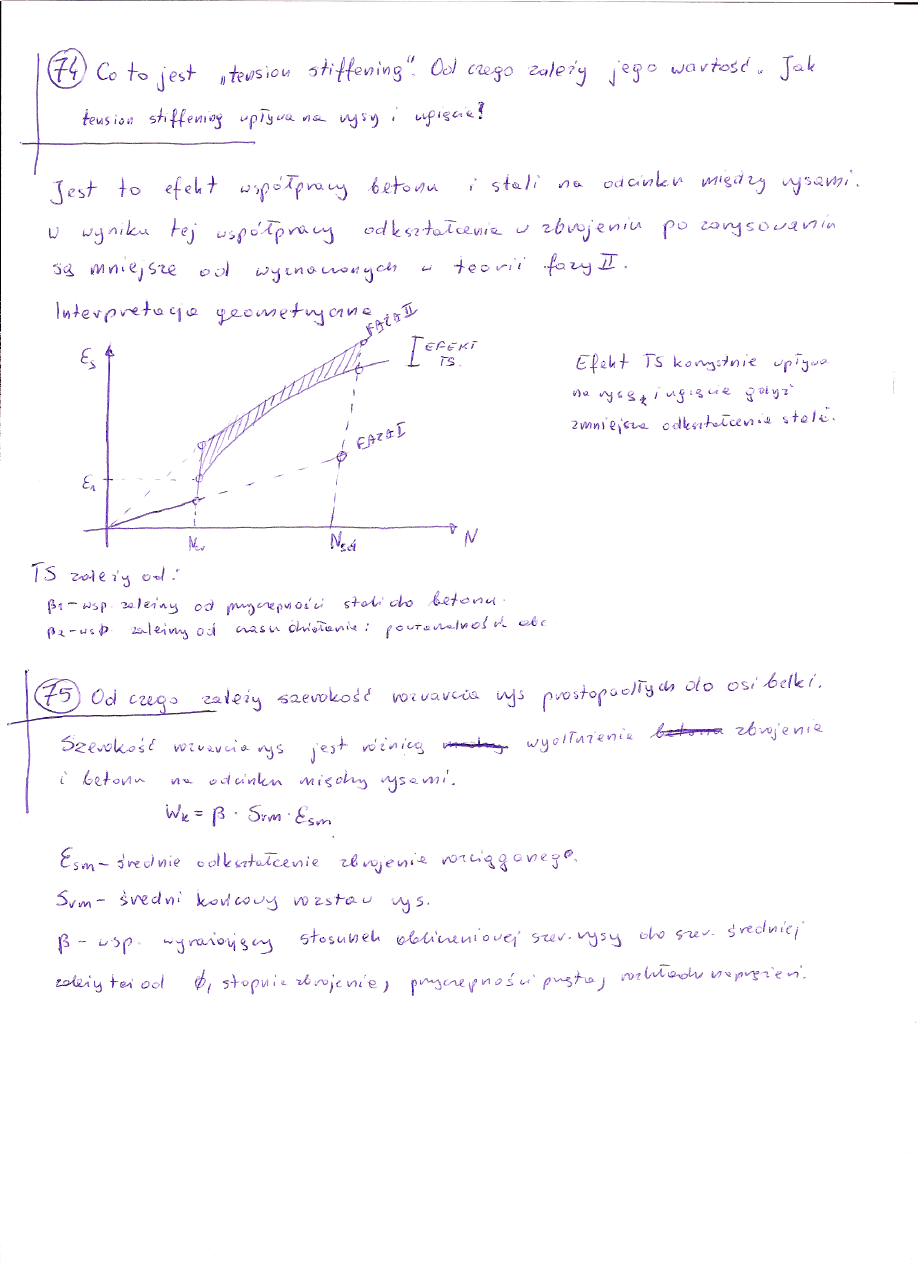 74 Co to jest „tension stiffening". Od czego zależy jego wartość. Jak
tension stiffening wpływa na rysy i ugięcia?
Jest to efekt współpracy betonu i stali na odcinku między rysami.
W wyniku tej współpracy odkształcenia w zbrojeniu po zarysowaniu
są mniejsze od wyznaczonych w teorii fazy II.
Interpretacja geometryczna
FAZA II
EFEKT
TS.
εs
Efekt TS korzystnie wpływa
na rysę i ugięcie gdyż
zmniejsza odkształcenie stali.
FAZA I
ε1
Ncr
Nsd
N
TS zależy od:
β1 – wsp. zależny od przyczepności stali do betonu.
β2 – wsp. zależny od czasu działania i powtarzalności obc
75 Od czego zależy szerokość rozwarcia rys prostopadłych do osi belki.
Szerokość rozwarcia rys jest różnicą wydłużenia zbrojenia
i betonu na odcinku między rysami.
Wk = β · Srm · εsm
εsm – średnie odkształcenie zbrojenia rozciąganego.
Srm – średni końcowy rozstaw rys.
β – wsp. wyrażający stosunek obliczeniowej szer. rysy do szer. średniej
zależy też od ϕ, stopnia zbrojenia, przyczepności pręta, rozkładu naprężeń.